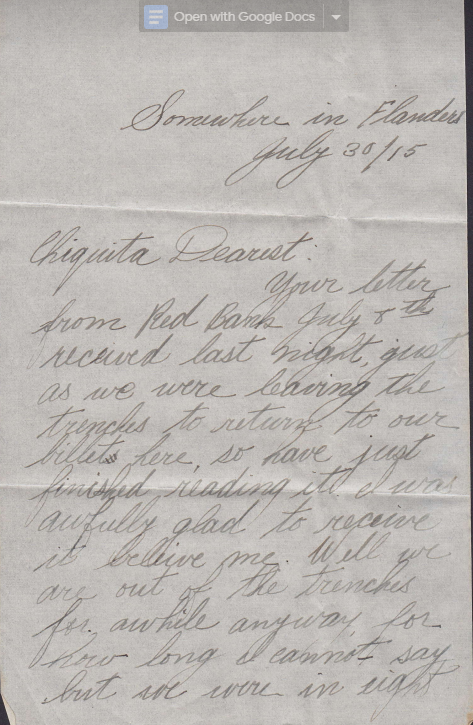 Open with Google Docs
Somewhere in Flanders
July 30/15
Chiquita Dearest:
Your letter
from Red Bank July 8th
received last night, just
as we were leaving the
trenches to return to our
billets here, so have just
finished reading it. I was
awfully glad to receive
it beleive me. Well we
are out of the trenches
for awhile anyway, for
how long I cannot say
but we were in eight